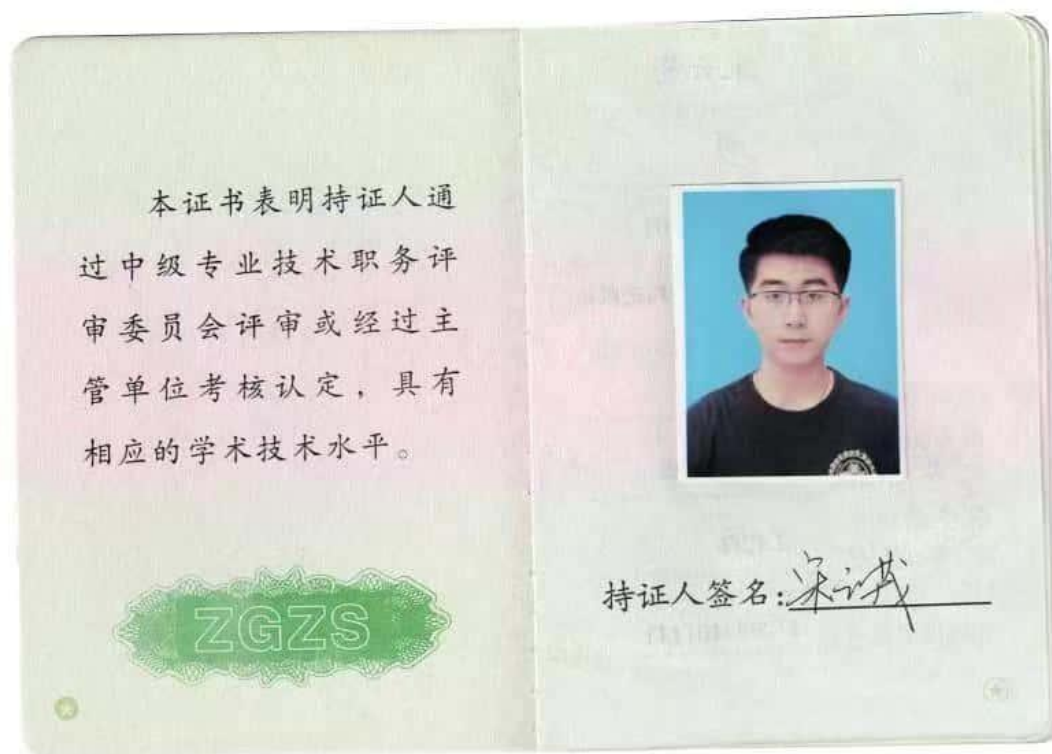 本证书表明持证人通
过中级专业技术职务评
审委员会评审或经过主
管单位考核认定，具有
相应的学术技术水平。
ZGZS
持证人签名:宋